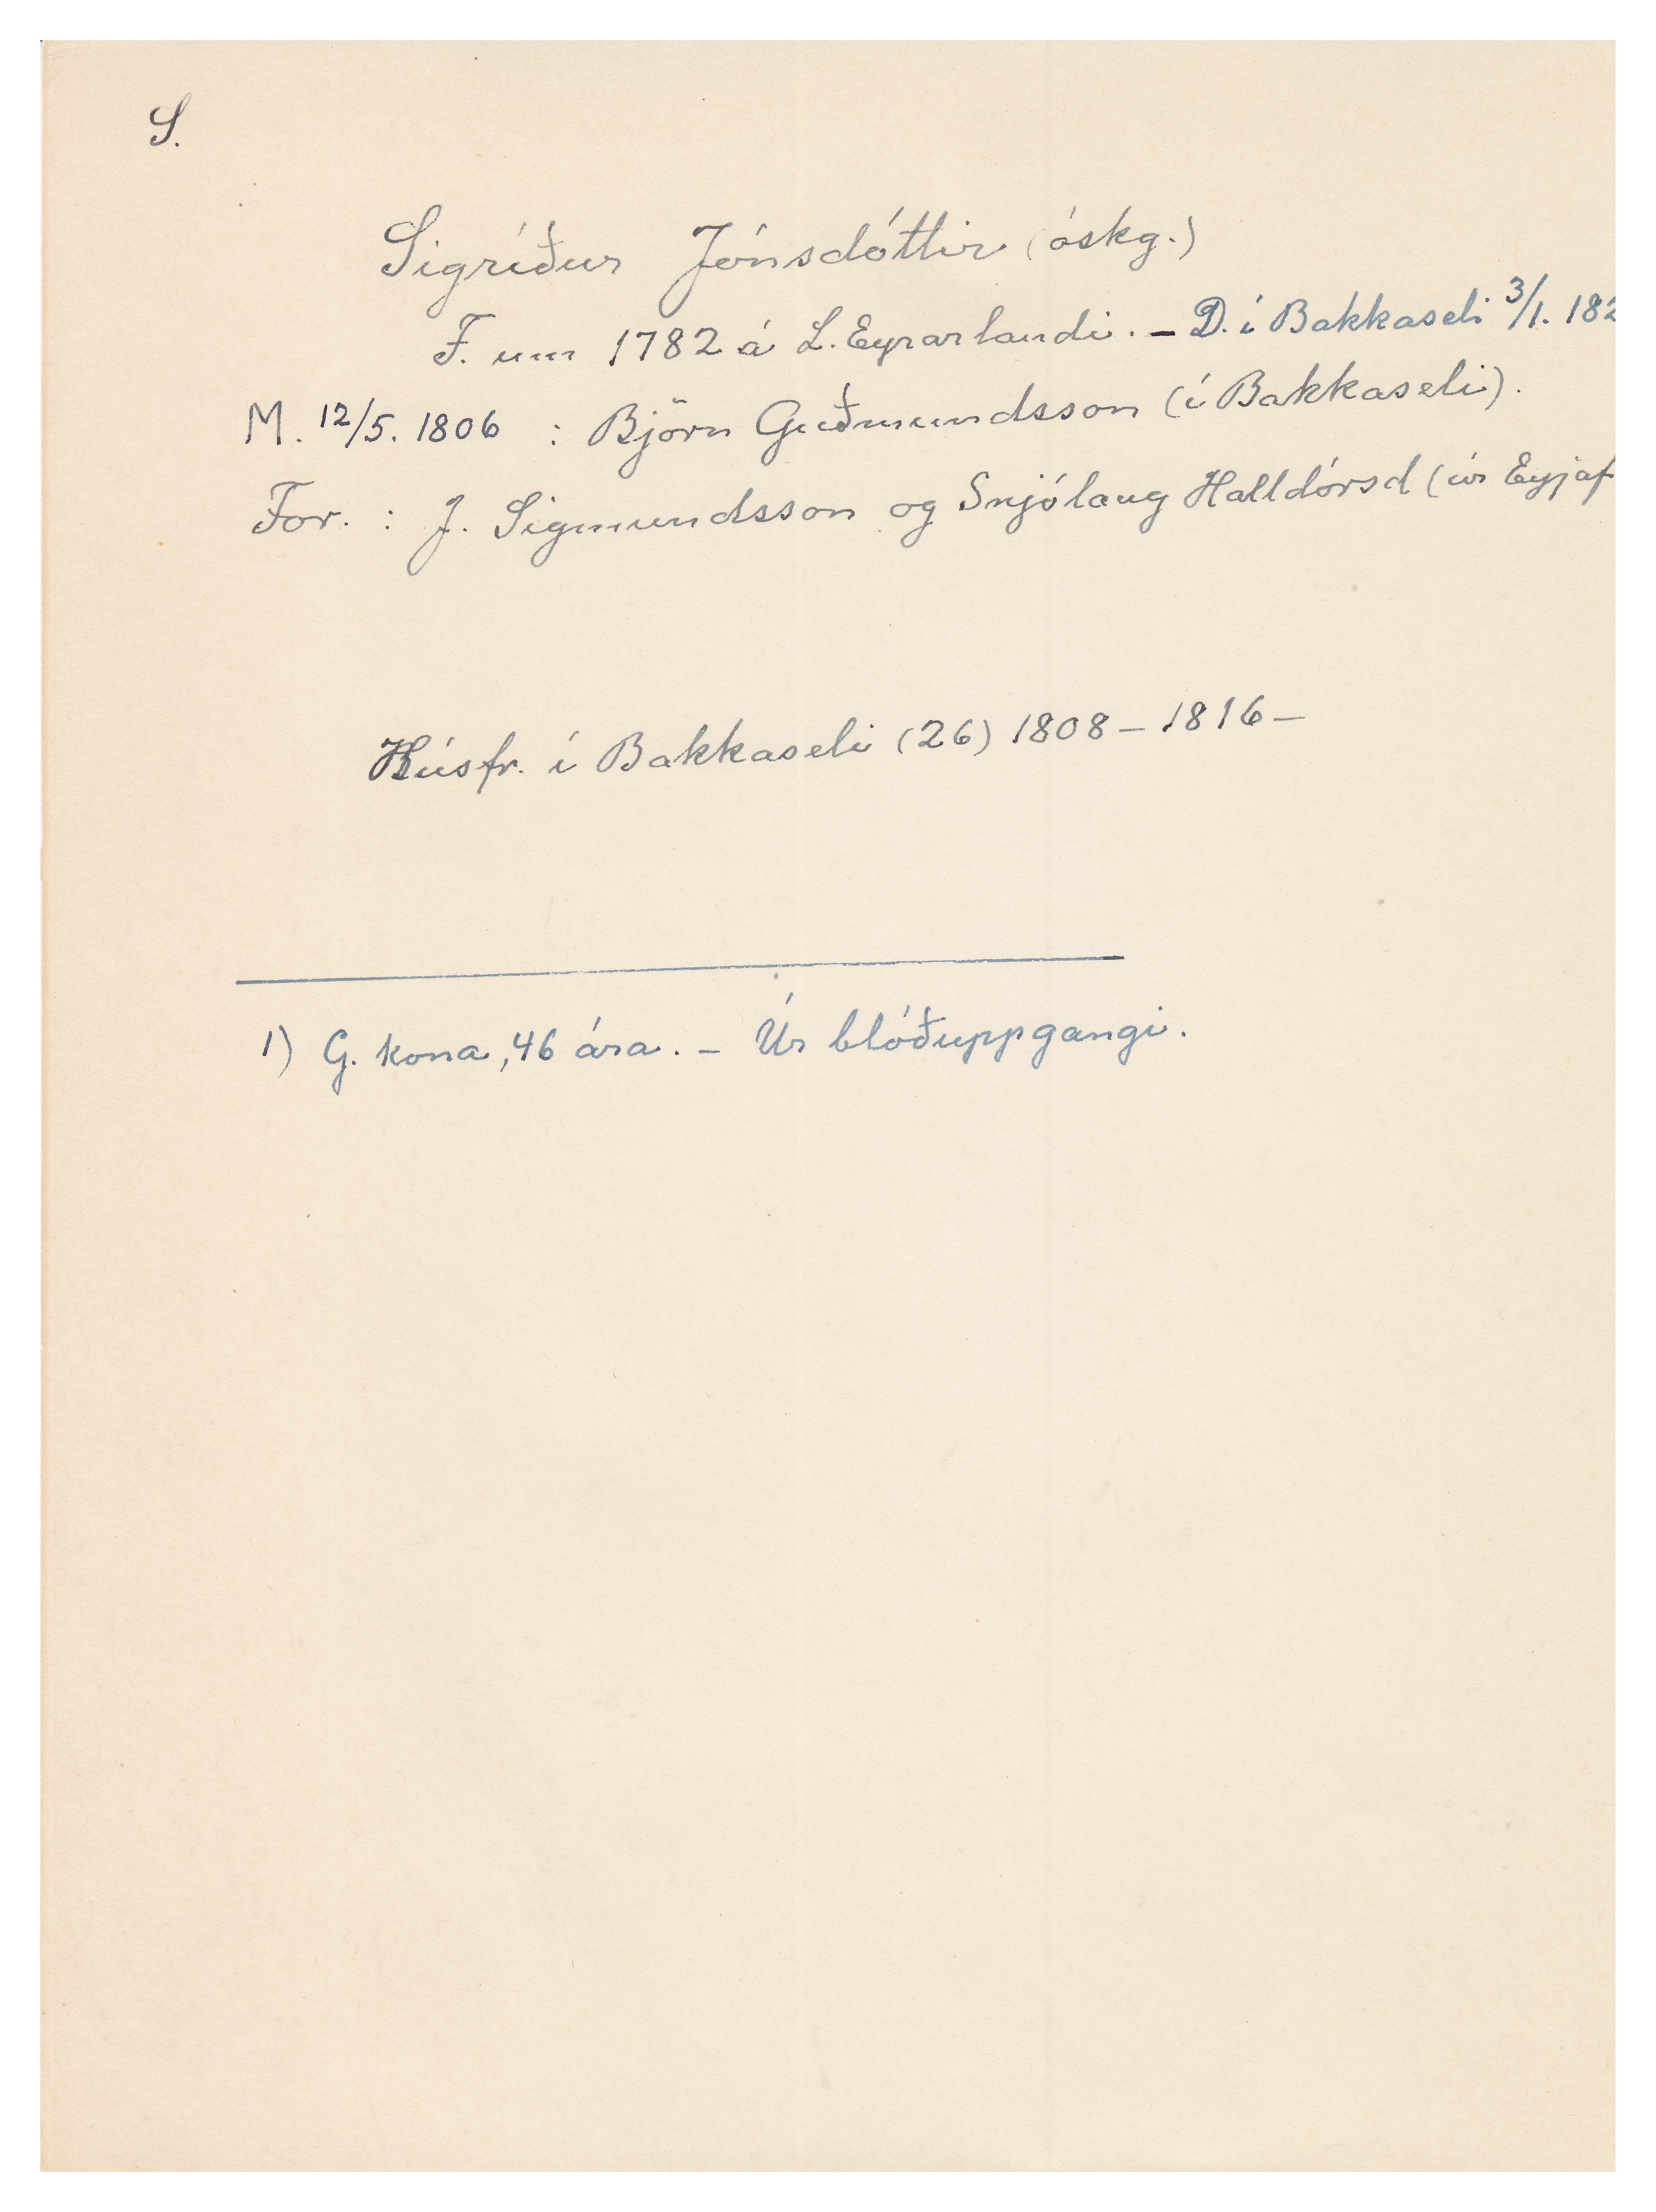 S.
Sigríður Jónsdóttir (óskg.)
F. um 1782 á L. Eyrarlandi. – D. í Bakkaseli 3/1. 182
M. 12/5. 1806 : Björn Guðmundsson (í Bakkaseli).
For. : J. Sigmundsson og Snjólaug Halldórsd (úr Eyjaf
Húsfr. í Bakkaseli (26) 1808 – 1816 –
1) G. kona, 46 ára. – Úr blóðuppgangi.